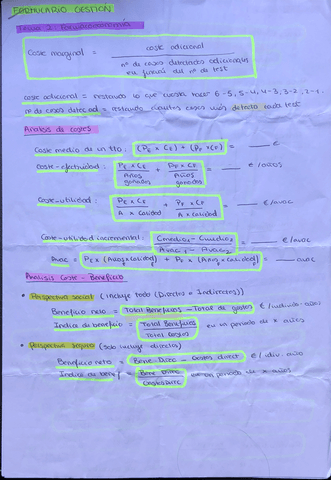 FORMULARIO GESTION
Tema 2: Farmacoeconomía
Coste marginal = coste adicional
nº de casos detectados adicionales
en función del nº de test
coste adicional = restando lo que cuesta hacer 6-5, 5-4, 4-3, 3-2, 2-1
nº de casos detec. ad = restando cuántos casos más detecta cada test
Análisis de costes
Coste medio de un tto: (PE x CE) + (PF x CF) = ___ €
Coste-efectividad: PE x CE + PF x CF = ___ €/años
Años ganados Años ganados
Coste-utilidad: PE x CE + PF x CF = ___ €/AVAC
A x calidad A x calidad
Coste-utilidad incremental: Cmedio2 - Cmedio1 = ___ €/AVAC
AVAC2 - AVAC1
AVAC = PE x (Años x calidad) + PF x (Años x calidad) = ___ AVAC
Análisis Coste - Beneficio
• Perspectiva social (incluye todo (Directos e Indirectos))
Beneficio neto = Total Beneficios - Total de gastos €/individuo-años
Indice de beneficio = Total Beneficios en un periodo de x años
Total Costes
• Perspectiva seguro (solo incluye directos)
Beneficio neto = Bene Direc - Costes direct €/idiv. año
Indice de benef = Bene Direc en un periodo de x años
Costes Direc